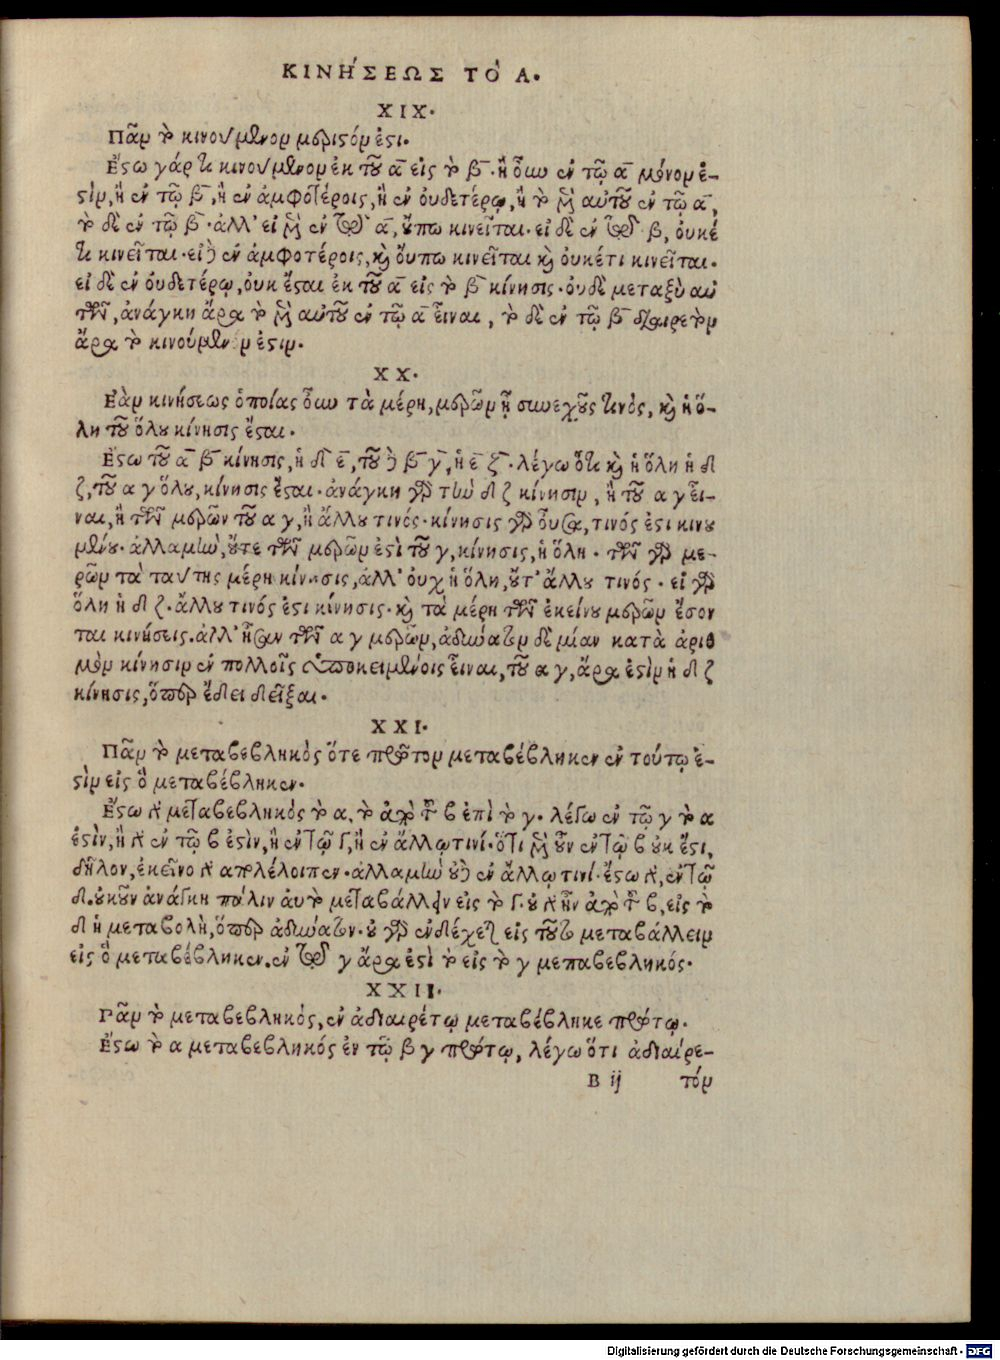 ΚΙΝΉΣΕΩΣ ΤῸ Α.
XIX.
Πᾶν τὸ κινούμενον μεριστόν ἐστι.
Ἔστω γάρ τι κινούμενον ἐκ τοῦ α̅ εἰς τὸ β̅· ἢ ὅλον ἐν τῷ α̅ μόνον ἐ-
στὶν, ἢ ἐν τῷ β̅, ἢ ἐν ἀμφοτέροις, ἢ ἐν οὐδετέρῳ, ἢ τὸ μὲν αὐτοῦ ἐν τῷ α̅,
τὸ δὲ ἐν τῷ β̅· ἀλλ' εἰ μὲν ἐν τῷ α̅, οὔπω κινεῖται· εἰ δὲ ἐν τῷ β, οὐκέ
τι κινεῖται· εἰ δὲ ἐν ἀμφοτέροις, καὶ οὔπω κινεῖται καὶ οὐκέτι κινεῖται.
εἰ δὲ ἐν οὐδετέρῳ, οὐκ ἔσται ἐκ τοῦ α̅ εἰς τὸ β̅ κίνησις· οὐδὲ μεταξὺ αὐ
τῶν, ἀνάγκη ἄρα τὸ μὲν αὐτοῦ ἐν τῷ α̅ εἶναι, τὸ δὲ ἐν τῷ β̅ διαιρετὸν
ἄρα τὸ κινούμενον ἐστιν.
XX.
Ἐὰν κινήσεως ὁποίας ὅλου τὰ μέρη, μερῶν ᾖ συνεχοῦς τινὸς, καὶ ἡ ὅ-
λη τοῦ ὅλου κίνησις ἔσται.
Ἔστω τοῦ α̅ β̅ κίνησις, ἡ δ̅ ε̅, τοῦ δὲ β̅ γ̅, ἡ ε̅ ζ̅· λέγω ὅτι καὶ ἡ ὅλη ἡ δ
ζ, τοῦ α γ ὅλου, κίνησις ἔσται· ἀνάγκη γὰρ τὴν δ ζ κίνησιν, ἢ τοῦ α γ εἶ-
ναι, ἢ τῶν μερῶν τοῦ α γ, ἢ ἄλλου τινός· κίνησις γὰρ οὖσα, τινός ἐστι κινου
μένου· ἀλλαμὴν, οὔτε τῶν μερῶν ἐστὶ τοῦ γ, κίνησις, ἡ ὅλη· τῶν γὰρ με-
ρῶν τὰ ταύτης μέρη κίνησις, ἀλλ' οὐχ ἡ ὅλη, οὔτ' ἄλλου τινός· εἰ γὰρ
ὅλη ἡ δ ζ· ἄλλου τινός ἐστι κίνησις· καὶ τὰ μέρη τῶν ἐκείνου μερῶν ἔσον
ται κινήσεις. ἀλλ' ἦσαν τῶν α γ μερῶν, ἀδύνατον δὲ μίαν κατὰ ἀριθ
μὸν κίνησιν ἐν πολλοῖς ὑποκειμένοις εἶναι, τοῦ α γ, ἄρα ἐστὶν ἡ δ ζ
κίνησις, ὅπερ ἔδει δεῖξαι.
XXI.
Πᾶν τὸ μεταβεβληκὸς ὅτε πρῶτον μεταβέβληκεν ἐν τούτῳ ἐ-
στὶν εἰς ὃ μεταβέβληκεν.
Ἔστω τὸ μεταβεβληκὸς τὸ α, τὸ ἀπὸ τοῦ β ἐπὶ τὸ γ. λέγω ἐν τῷ γ τὸ α
ἐστὶν, ἢ τὸ ἐν τῷ β ἐστὶν, ἢ ἐν τῷ γ, ἢ ἐν ἄλλῳ τινί· ὅτι μὲν οὖν ἐν τῷ β οὐκ ἔστι,
δῆλον, ἐκεῖνο τὸ ἀπολέλοιπεν· ἀλλαμὴν οὐδὲ ἐν ἄλλῳ τινί· ἔστω τὸ, ἐν τῷ
δ. οὐκοῦν ἀνάγκη πάλιν αὐτὸ μεταβάλλειν εἰς τὸ γ. οὐ τὸ ἦν ἀπὸ τοῦ β, εἰς τὸ
δ ἡ μεταβολὴ, ὅπερ ἀδύνατον· οὐ γὰρ ἐνδέχεται εἰς τοῦτο μεταβάλλειν
εἰς ὃ μεταβέβληκεν. ἐν τῷ γ ἄρα ἐστὶ τὸ εἰς τὸ γ μεπαβεβληκός.
XXII.
Γᾶν τὸ μεταβεβληκός, ἐν ἀδιαιρέτῳ μεταβέβληκε πρώτῳ.
Ἔστω τὸ α μεταβεβληκός ἐν τῷ β γ πρώτῳ, λέγω ὅτι ἀδιαίρε-
B ij τόν
Digitalisierung gefördert durch die Deutsche Forschungsgemeinschaft - DFG